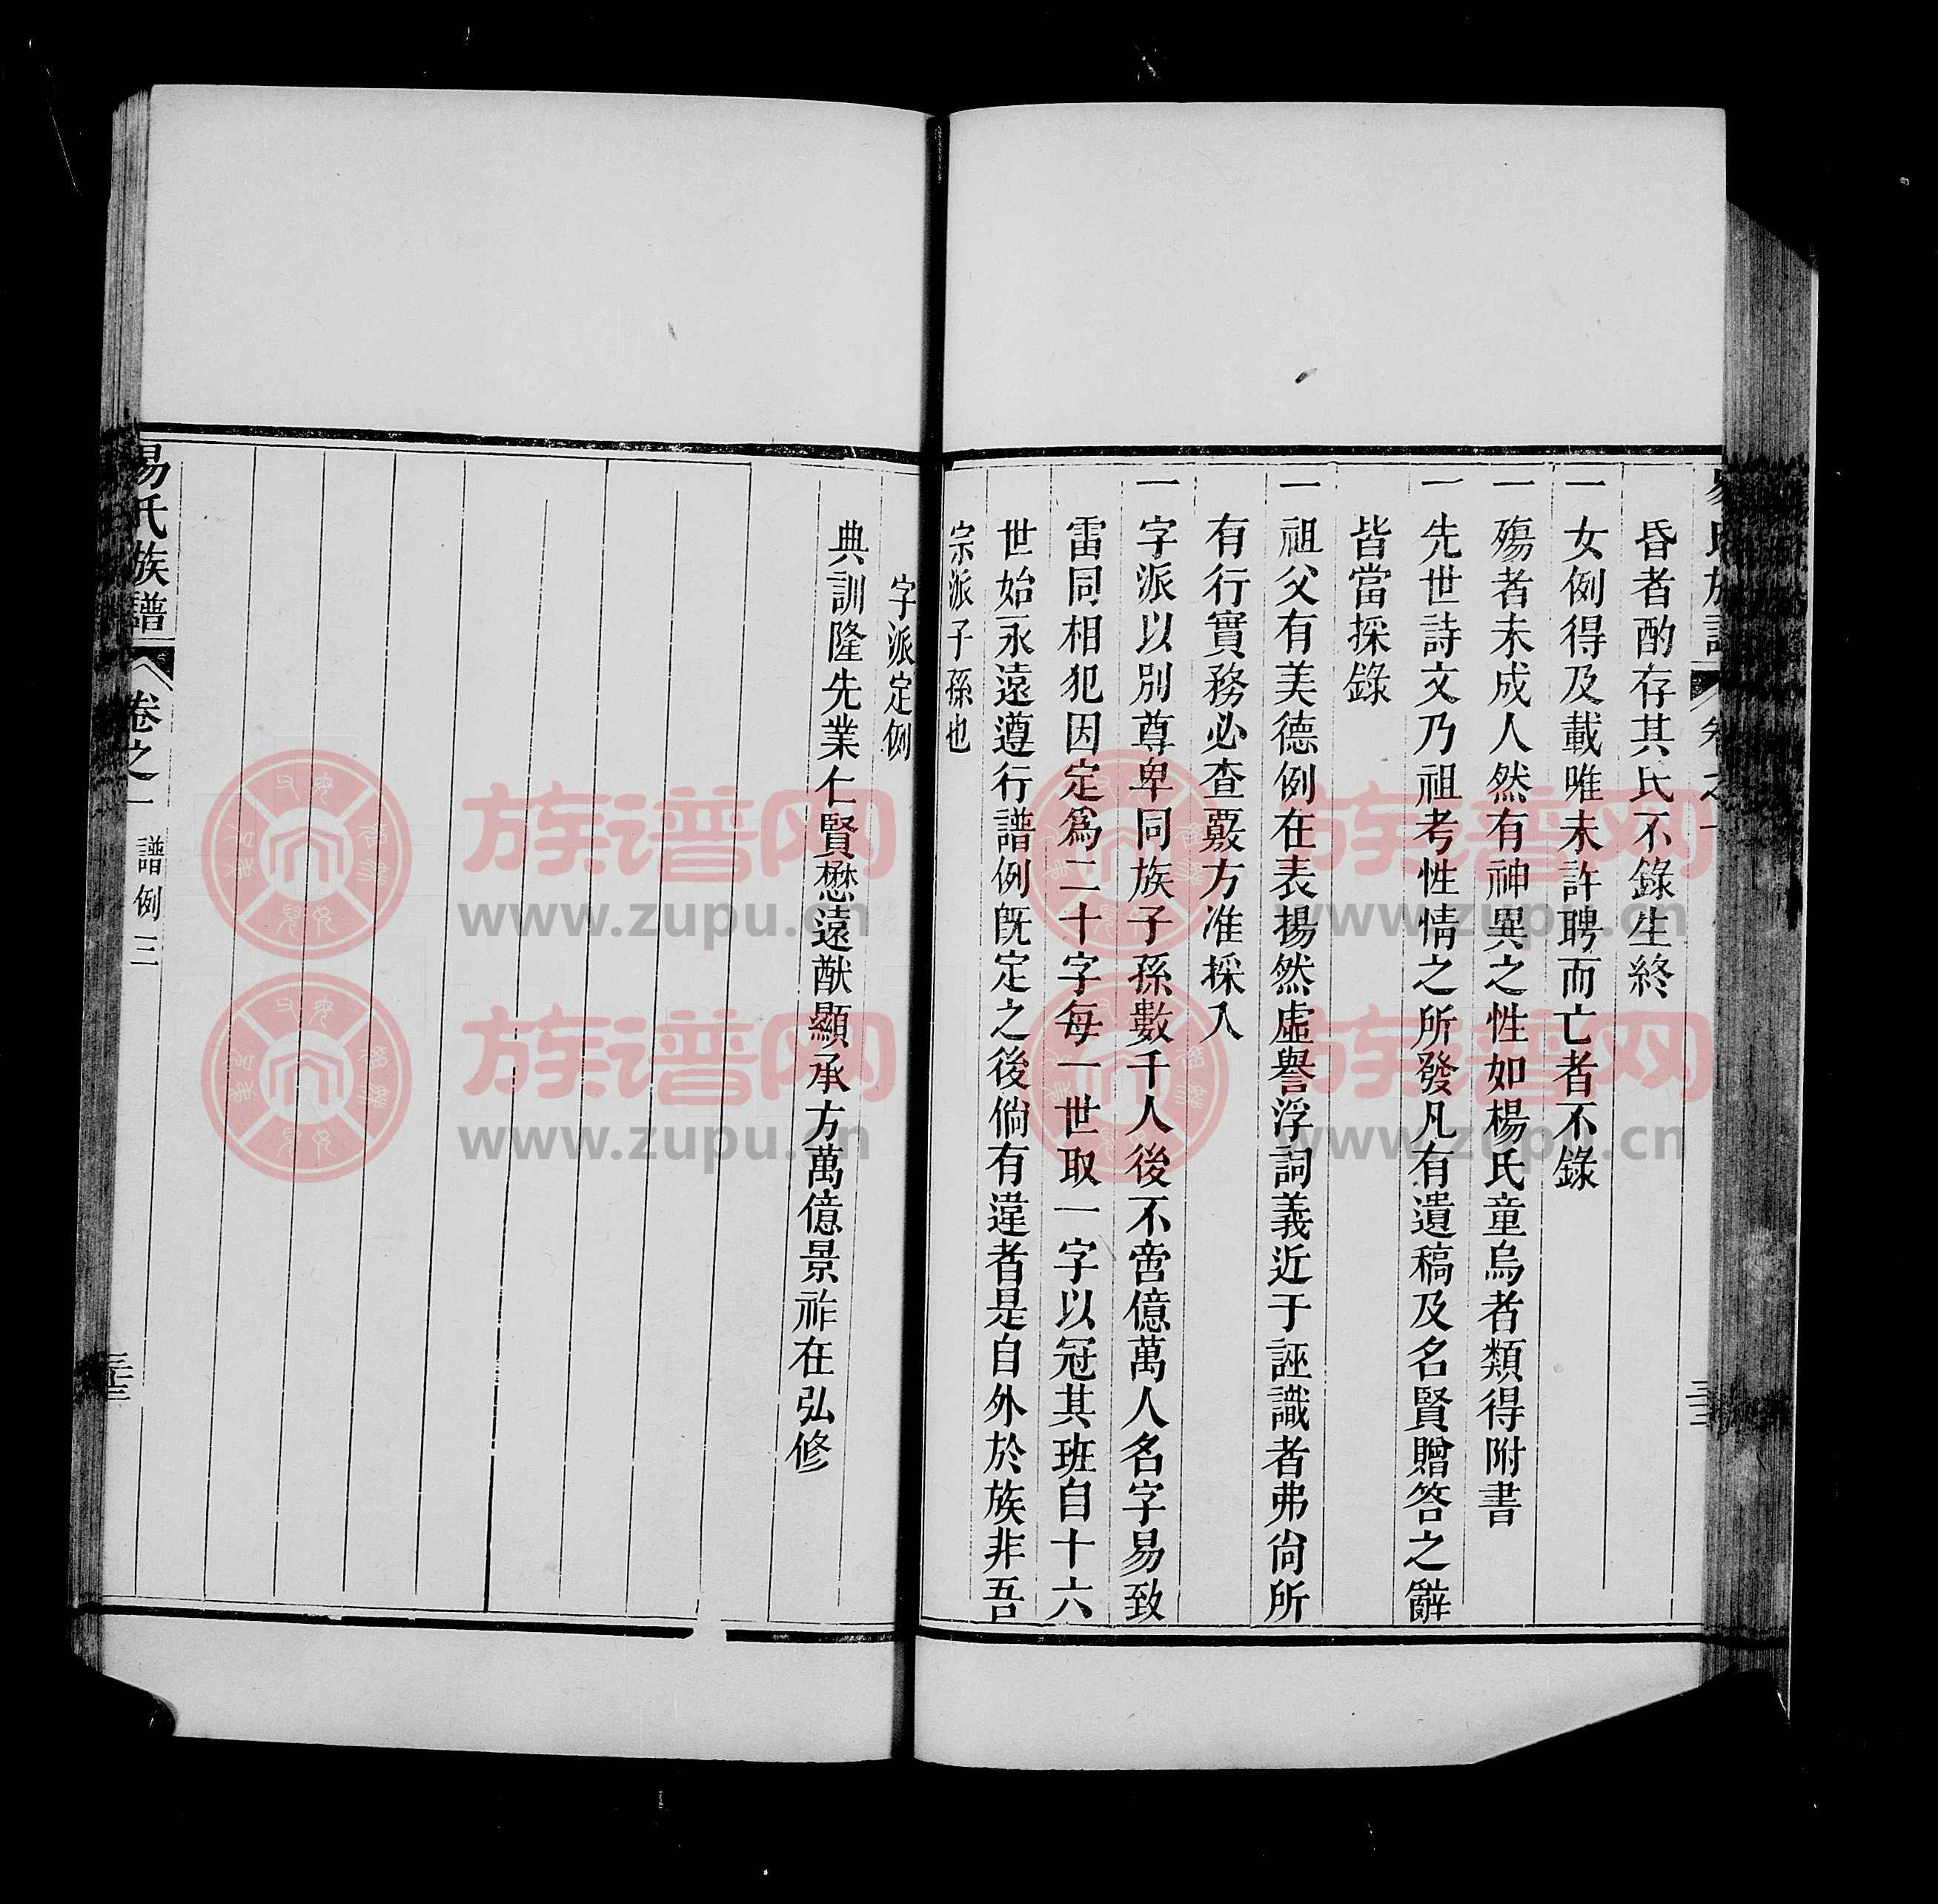 昏者酌存其氏不錄生終
一女例得及載唯未許聘而亡者不錄
一殤者未成人然有神異之性如楊氏童烏者類得附書
一先世詩文乃祖考性情之所發凡有遺稿及名賢贈答之辭
皆當採錄
一祖父有美德例在表揚然虛譽浮詞義近于誣識者弗尙所
有行實務必查覈方准採入
一字派以別尊卑同族子孫數千人後不啻億萬人名字易致
雷同相犯因定爲二十字每一世取一字以冠其班自十六
世始永遠遵行譜例旣定之後倘有違者是自外於族非吾
宗派子孫也
字派定例
典訓隆先業仁賢懋遠猷顯承方萬億景祚在弘修
易氏族譜
卷之一
譜例三
族谱网
www.zupu.cn
族谱网
www.zupu.cn
族谱网
www.zupu.cn
族谱网
www.zupu.cn